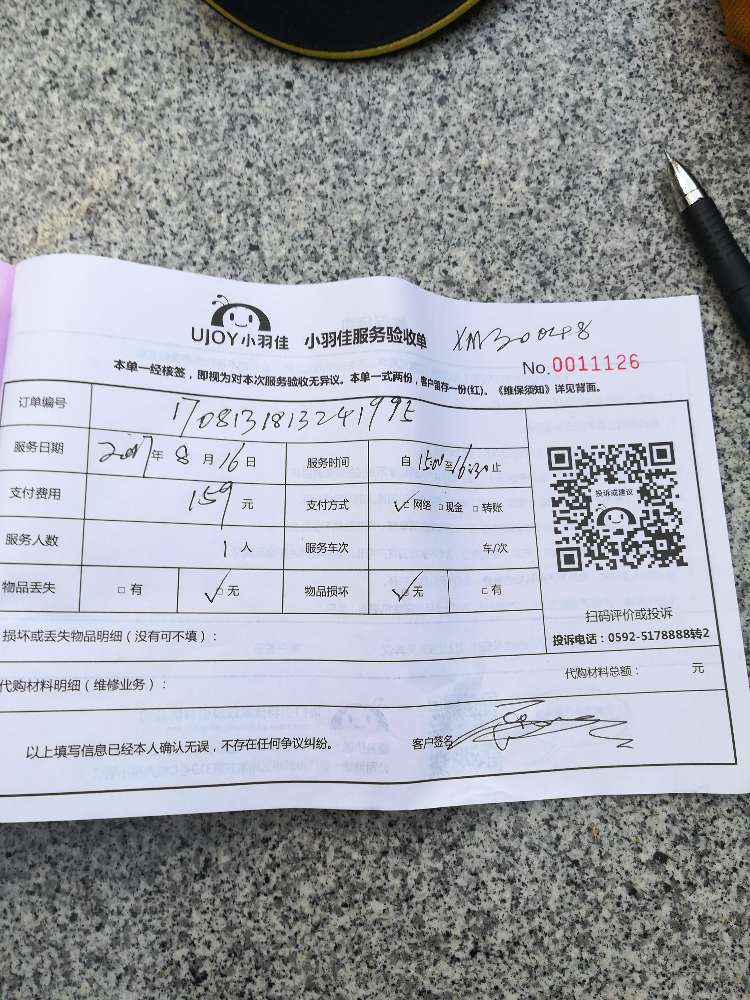 UJOY小羽佳 小羽佳服务验收单 XM300248
No.0011126
本单一经核签，即视为对本次服务验收无异议。本单一式两份，客户留存一份(红)。《维保须知》详见背面。
订单编号 1708131813241995
服务日期 2017年8月16日 服务时间 自15:00至16:30止
支付费用 159元 支付方式 ☑网络 □现金 □转账
服务人数 1人 服务车次 车/次
物品丢失 □有 ☑无 物品损坏 ☑无 □有
投诉或建议
扫码评价或投诉
投诉电话：0592-5178888转2
损坏或丢失物品明细（没有可不填）：
代购材料明细（维修业务）： 代购材料总额： 元
以上填写信息已经本人确认无误，不存在任何争议纠纷。 客户签名